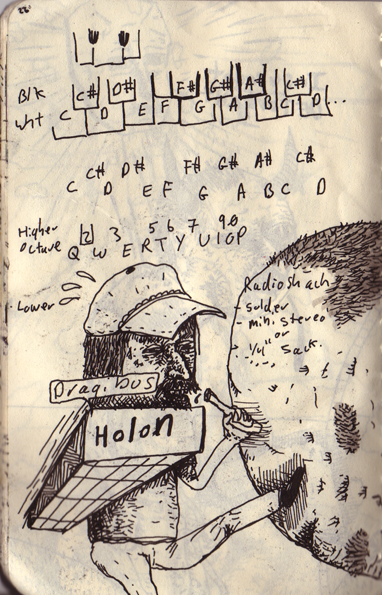 Blk C# D# F# G# A# C#
Wht C D E F G A B C D ...
C# D# F# G# A# C#
C D E F G A B C D
Higher
octave
2 3 5 6 7 9 0
Q W E R T Y U I O P
Lower
Radioshack
- solder
mini stereo
or
- 1/4" Jack.
Dragibus
Holon